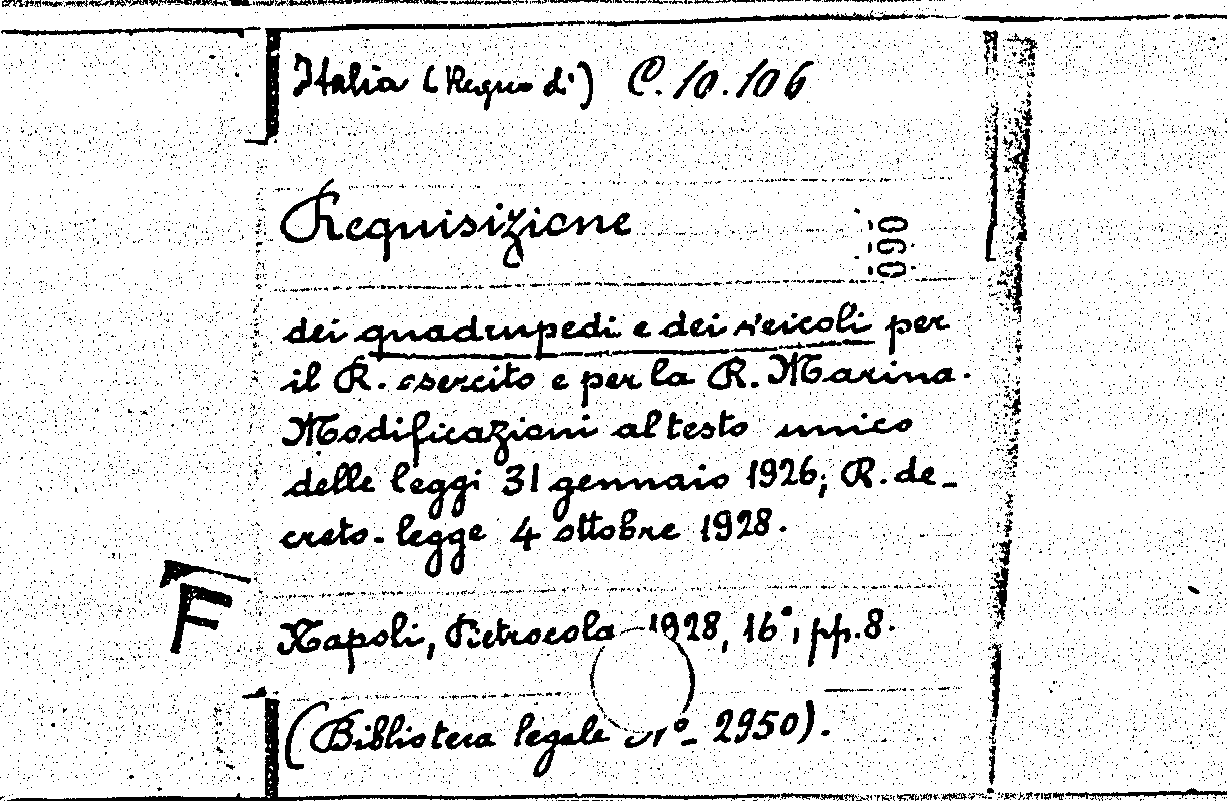 Italia (Regno di) C.10.106
Requisizione
090
dei quadrupedi e dei veicoli per
il R. esercito e per la R. Marina.
Modificazioni al testo unico
delle leggi 31 gennaio 1926; R. de-
creto-legge 4 ottobre 1928.
F
Napoli, Pietrocola 1928, 16°, pp. 8.
(Biblioteca legale n° 2950).